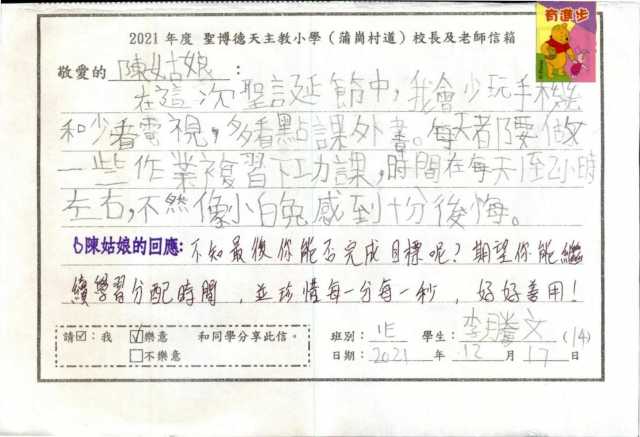 有進步
2021 年度 聖博德天主教小學（蒲崗村道）校長及老師信箱
敬愛的 陳姑娘 ：
在這次聖誕節中，我會少玩手機
和少看電視，多看點課外書。每天都要做
一些作業複習下功課，時間在每天1至2小時
左右，不然像小白兔感到十分後悔。
陳姑娘的回應: 不知最後你能否完成目標呢？期望你能繼
續學習分配時間，並珍惜每一分每一秒，好好善用！
請☑：我 ☑樂意 和同學分享此信。 班別： 1E 學生： 李騰文 (14)
□不樂意 日期： 2021 年 12 月 17 日